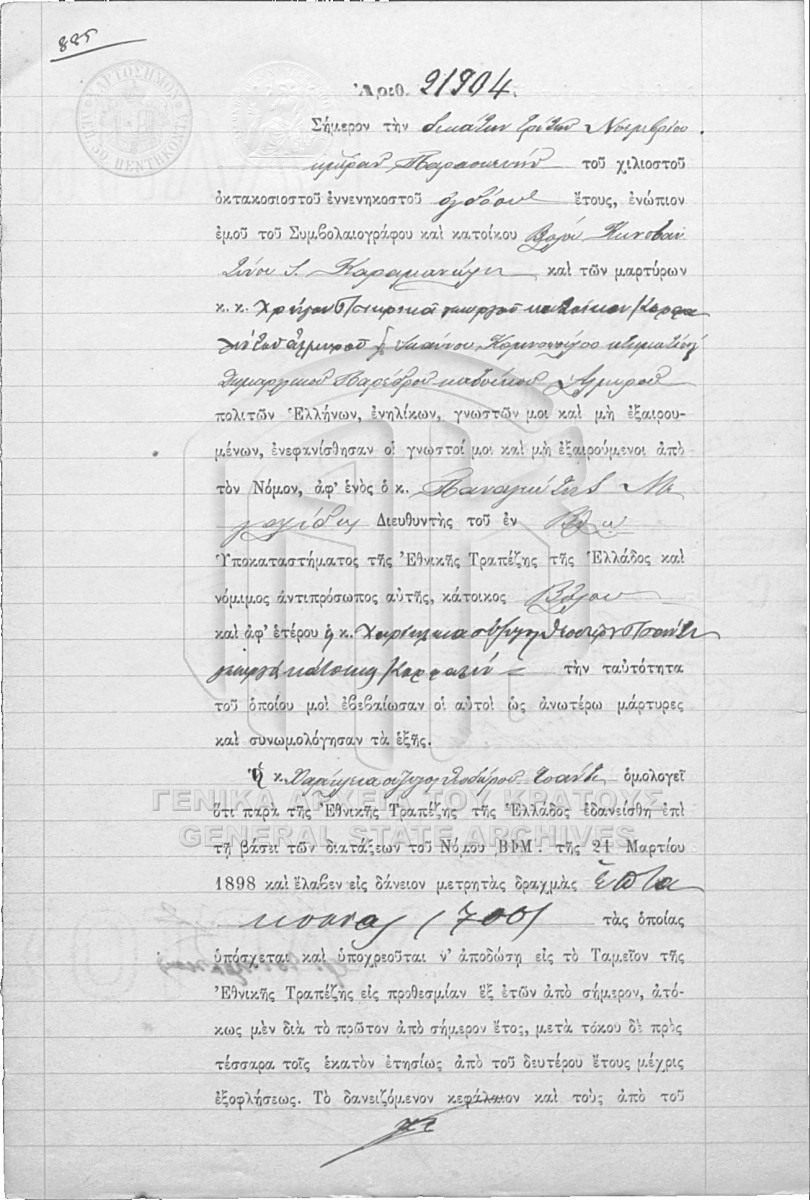 885
ΧΑΡΤΟΣΗΜΟΝ
Ἀριθ. 21904.
Σήμερον τὴν δεκάτην τρίτην Νοεμβρίου
ἡμέραν Παρασκευήν τοῦ χιλιοστοῦ
ὀκτακοσιοστοῦ ἐννενηκοστοῦ ὀγδόου ἔτους, ἐνώπιον
ἐμοῦ τοῦ Συμβολαιογράφου καὶ κατοίκου Βόλου Κωνσταν
τίνου καὶ τῶν μαρτύρων
κ. κ. γεωργοῦ κατοίκου
Ἁλμυροῦ κτηματίου
Δημαρχικοῦ Παρέδρου κατοίκου Ἁλμυροῦ
πολιτῶν Ἑλλήνων, ἐνηλίκων, γνωστῶν μοι καὶ μὴ ἐξαιρου-
μένων, ἐνεφανίσθησαν οἱ γνωστοί μοι καὶ μὴ ἐξαιρούμενοι ἀπὸ
τὸν Νόμον, ἀφ' ἑνὸς ὁ κ. Παναγιώτης
Διευθυντὴς τοῦ ἐν Βόλῳ
Ὑποκαταστήματος τῆς Ἐθνικῆς Τραπέζης τῆς Ἑλλάδος καὶ
νόμιμος ἀντιπρόσωπος αὐτῆς, κάτοικος Βόλου
καὶ ἀφ' ἑτέρου ἡ κ. Χαρίκλεια σύζυγος Θεοδώρου Τσάντη
κάτοικος τὴν ταὐτότητα
τοῦ ὁποίου μοὶ ἐβεβαίωσαν οἱ αὐτοὶ ὡς ἀνωτέρω μάρτυρες
καὶ συνωμολόγησαν τὰ ἑξῆς.
Ἡ κ. Χαρίκλεια σύζυγος Θεοδώρου Τσάντη ὁμολογεῖ
ΓΕΝΙΚΑ ΑΡΧΕΙΑ ΤΟΥ ΚΡΑΤΟΥΣ
ὅτι παρὰ τῆς Ἐθνικῆς Τραπέζης τῆς Ἑλλάδος ἐδανείσθη ἐπὶ
GENERAL STATE ARCHIVES
τῇ βάσει τῶν διατάξεων τοῦ Νόμου ΒΦΜ. τῆς 21 Μαρτίου
1898 καὶ ἔλαβεν εἰς δάνειον μετρητὰς δραχμὰς ἑπτα
κοσίας (700) τὰς ὁποίας
ὑπόσχεται καὶ ὑποχρεοῦται ν' ἀποδώσῃ εἰς τὸ Ταμεῖον τῆς
Ἐθνικῆς Τραπέζης εἰς προθεσμίαν ἓξ ἐτῶν ἀπὸ σήμερον, ἀτό-
κως μὲν διὰ τὸ πρῶτον ἀπὸ σήμερον ἔτος, μετὰ τόκου δὲ πρὸς
τέσσαρα τοῖς ἑκατὸν ἐτησίως ἀπὸ τοῦ δευτέρου ἔτους μέχρις
ἐξοφλήσεως. Τὸ δανειζόμενον κεφάλαιον καὶ τοὺς ἀπὸ τοῦ